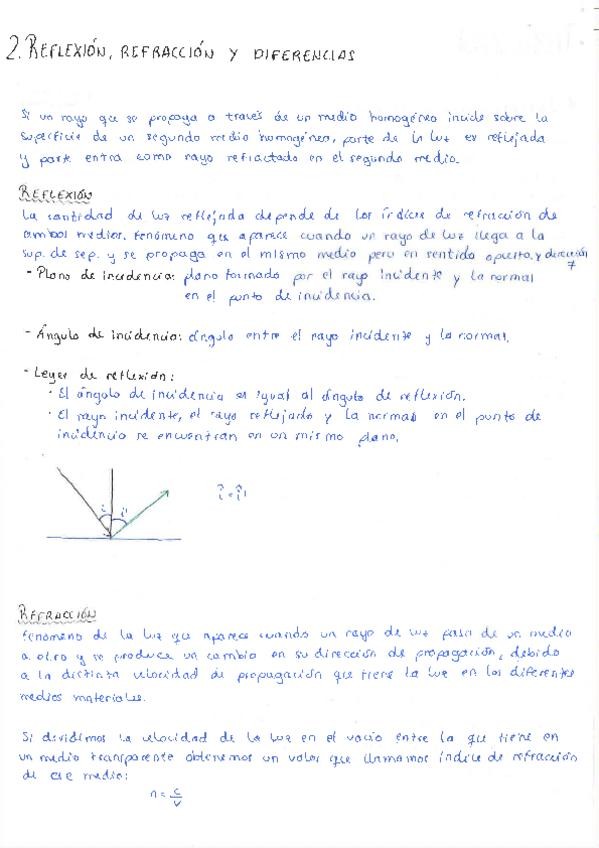 2. REFLEXIÓN, REFRACCIÓN Y DIFERENCIAS
Si un rayo que se propaga a través de un medio homogéneo incide sobre la
superficie de un segundo medio homogéneo, parte de la luz es reflejada
y parte entra como rayo refractado en el segundo medio.
REFLEXIÓN
La cantidad de luz reflejada depende de los índices de refracción de
ambos medios. Fenómeno que aparece cuando un rayo de luz llega a la
sup. de sep. y se propaga en el mismo medio pero en sentido opuesto, y dirección
≠
- Plano de incidencia: plano formado por el rayo incidente y la normal
en el punto de incidencia.
- Ángulo de incidencia: ángulo entre el rayo incidente y la normal.
- Leyes de reflexión:
· El ángulo de incidencia es igual al ángulo de reflexión.
· El rayo incidente, el rayo reflejado y la normal en el punto de
incidencia se encuentran en un mismo plano.
i i' î = î'
REFRACCIÓN
Fenómeno de la luz que aparece cuando un rayo de luz pasa de un medio
a otro y se produce un cambio en su dirección de propagación, debido
a la distinta velocidad de propagación que tiene la luz en los diferentes
medios materiales.
Si dividimos la velocidad de la luz en el vacío entre la que tiene en
un medio transparente obtenemos un valor que llamamos índice de refracción
de ese medio:
n = c/v